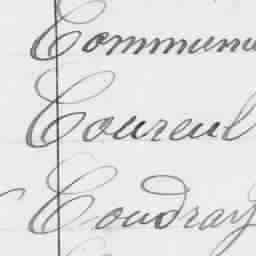 Communu
Coureul
Coudray